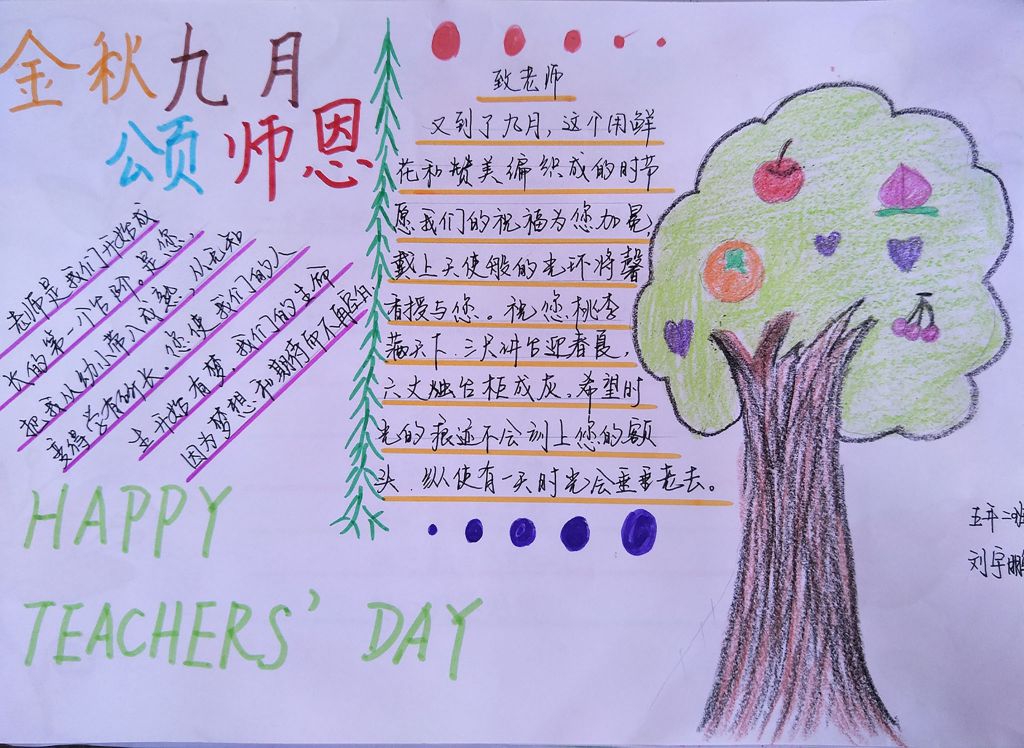 金秋九月
颂师恩
老师是我们开始成
长的第一个台阶。是您,
把我从幼小带入成熟,从无知
变得学有所长。您使我们的人
生开始有梦,我们的生命
因为梦想和期待而不再空白
HAPPY
TEACHERS' DAY
致老师
又到了九月,这个用鲜
花和赞美编织成的时节
愿我们的祝福为您加冕
戴上天使般的光环将馨
香授与您。祝您桃李
满天下,三尺讲台迎春晨,
六丈烛台炬成灰。希望时
光的痕迹不会刻上您的额
头,纵使有一天时光会垂垂老去。
五年二班
刘宇鹏